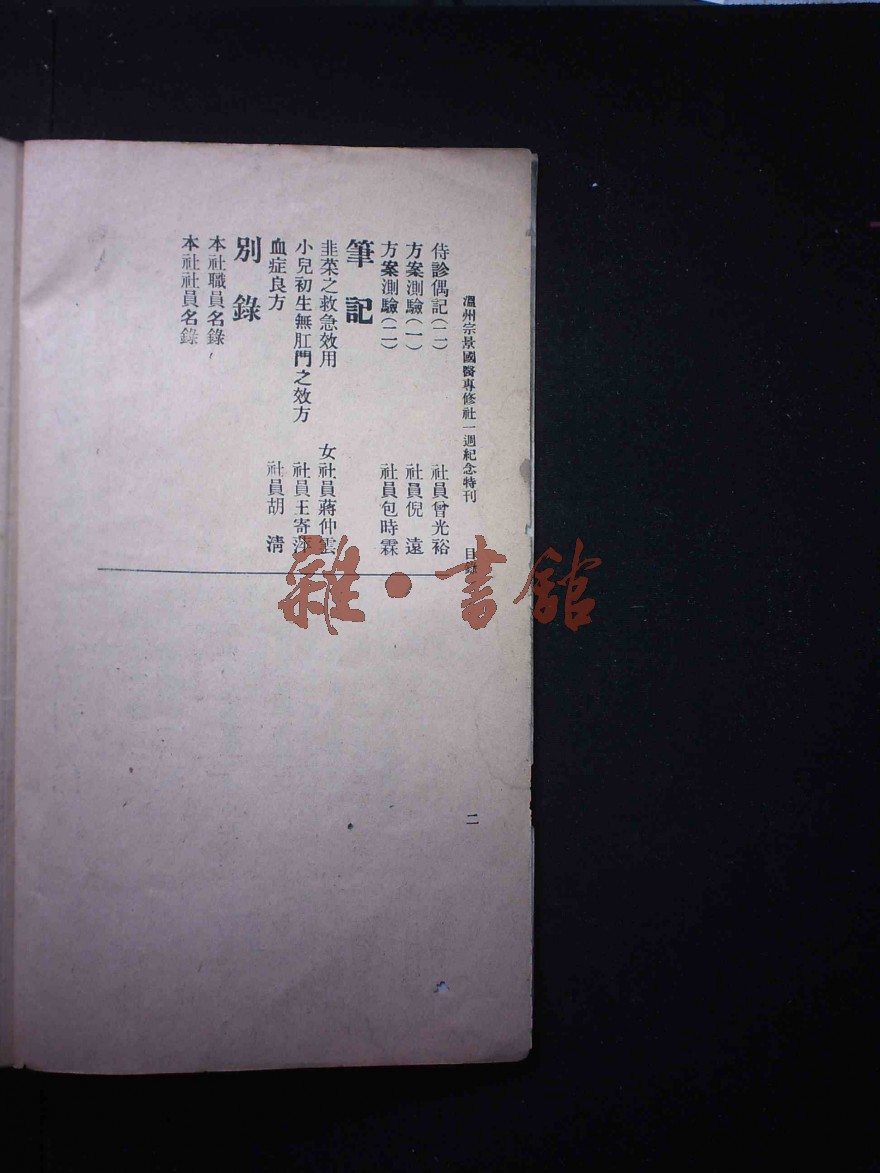 溫州宗景國醫專修社一週紀念特刊 目錄 二
侍診偶記(二) 社員曾光裕
方案測驗(一) 社員倪遠
方案測驗(二) 社員包時霖
筆記
韭菜之救急效用 女社員蔣仲雲
小兒初生無肛門之效方 社員王寄萍
血症良方 社員胡清
別錄
本社職員名錄
本社社員名錄
雜·書館